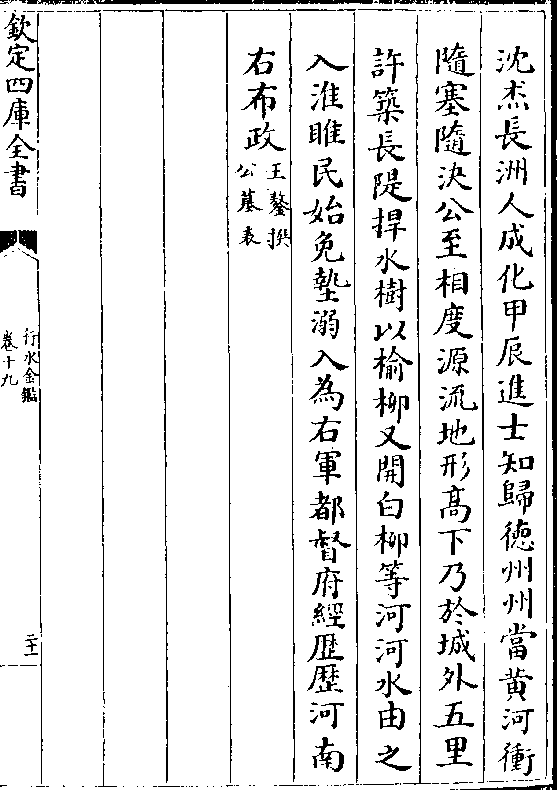 沈杰長洲人成化甲辰進士知歸徳州州當黄河衝
隨塞隨決公至相度源流地形髙下乃於城外五里
許築長隄捍水樹以榆柳又開白柳等河河水由之
入淮睢民始免墊溺入為右軍都督府經歴歴河南
右布政王鏊撰
公墓表
欽定四庫全書
行水金鑑
卷十九
二十